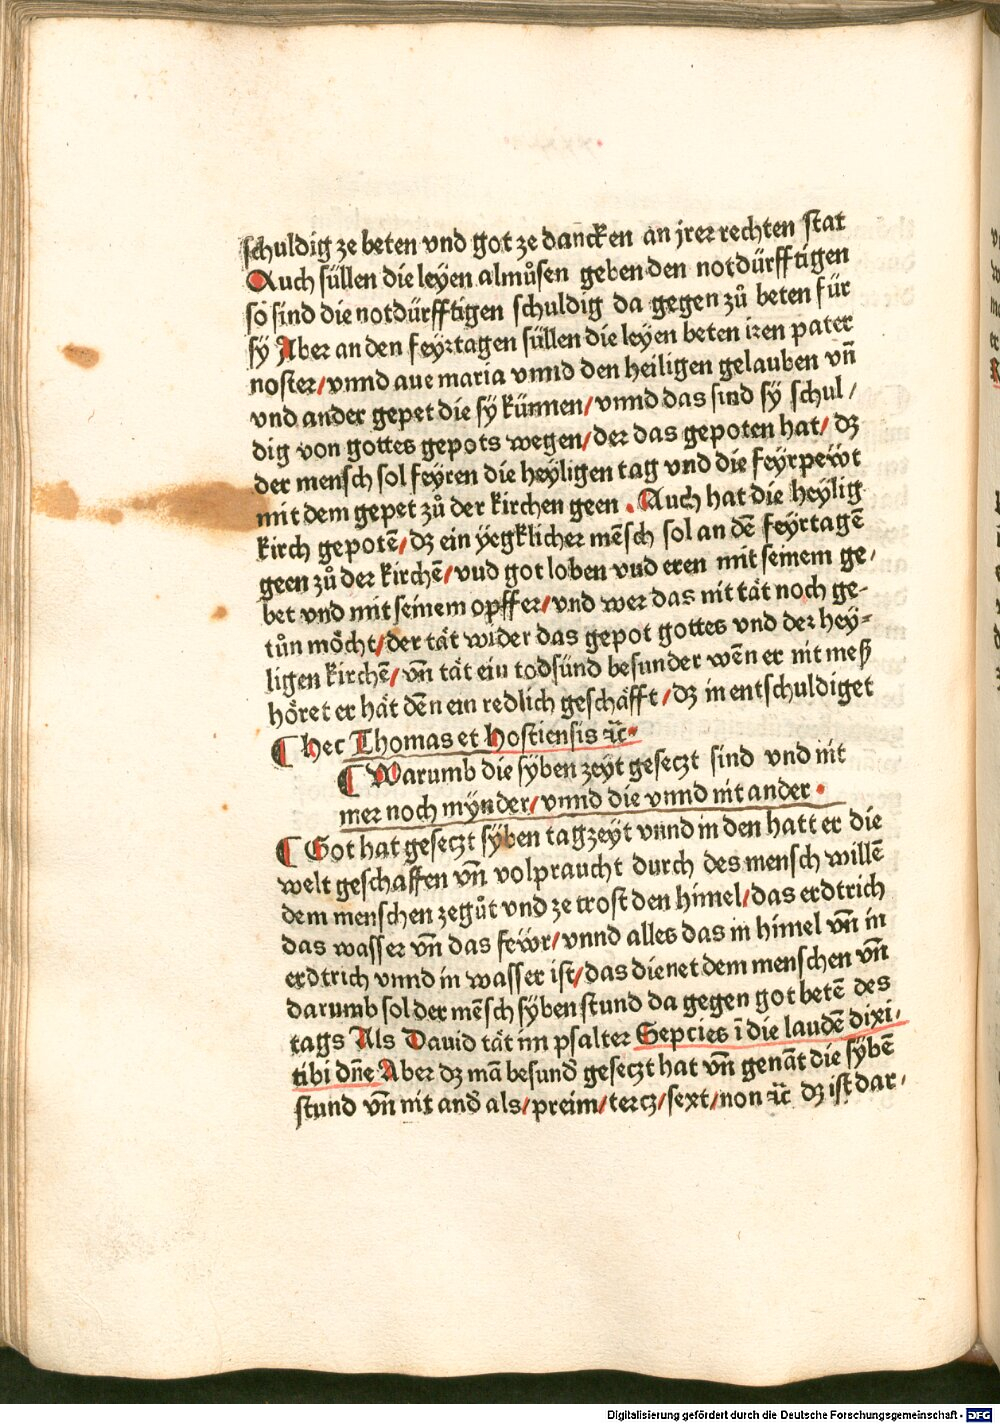 schuldig ze beten vnd got ze dancken an jrer rechten stat
Auch süllen die leyen almůsen geben den notdürfftigen
so sind die notdürfftigen schuldig da gegen zů beten für
sÿ Aber an den feyrtagen süllen die leyen beten iren pater
noster/vnnd aue maria vnnd den heiligen gelauben vn̄
vnd ander gepet die sÿ künnen/vnnd das sind sÿ schul/
dig von gottes gepots wegen/der das gepoten hat/ dz
der mensch sol feÿren die heÿligen tag vnd die feÿrpeẅt
mit dem gepet zů der kirchen geen . Auch hat die heÿlig
kirch gepotē/dz ein ÿegklicher mēsch sol an dē feÿrtagē
geen zů der kirchē/vnd got loben vnd eren mit seinem ge/
bet vnd mit seinem opffer/vnd wer das nit tät noch ge-
tůn möcht/der tät wider das gepot gottes vnd der hey-
ligen kirchē/vn̄ tät ein todsünd besunder wēn er nit meß
höret er hät dēn ein redlich geschäfft/dz in entschuldiget
¶ Hec Thomas et Hostiensis ꝛc̄.
¶ Warumb die sÿben zeyt geseczt sind vnd nit
mer noch mÿnder/vnnd die vnnd nit ander .
¶ Got hat geseczt sÿben tagzeyt vnnd in den hatt er die
welt geschaffen vn̄ volpraucht durch des mensch willē
dem menschen zegůt vnd ze trost den himel/das erdtrich
das wasser vn̄ das feẅr/vnnd alles das in himel vn̄ in
erdtrich vnnd in wasser ist/das dienet dem menschen vn̄
darumb sol der mēsch sÿben stund da gegen got betē des
tags Als Dauid tät im psalter Sepcies ī die laudē dixi/
tibi dn̄e Aber dz mā besund̄ geseczt hat vn̄ genāt die sÿbē
stund vn̄ nit and̄ als/preim/tercz/sext/non ꝛc̄ dz ist dar/
Digitalisierung gefördert durch die Deutsche Forschungsgemeinschaft - DFG